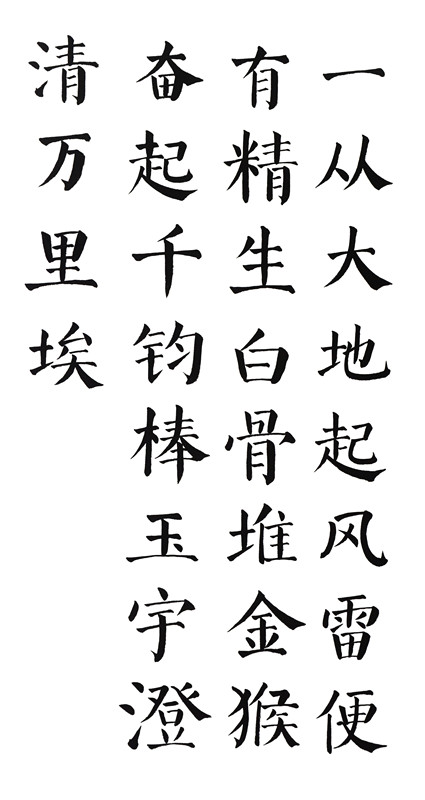 一从大地起风雷便
有精生白骨堆金猴
奋起千钧棒玉宇澄
清万里埃